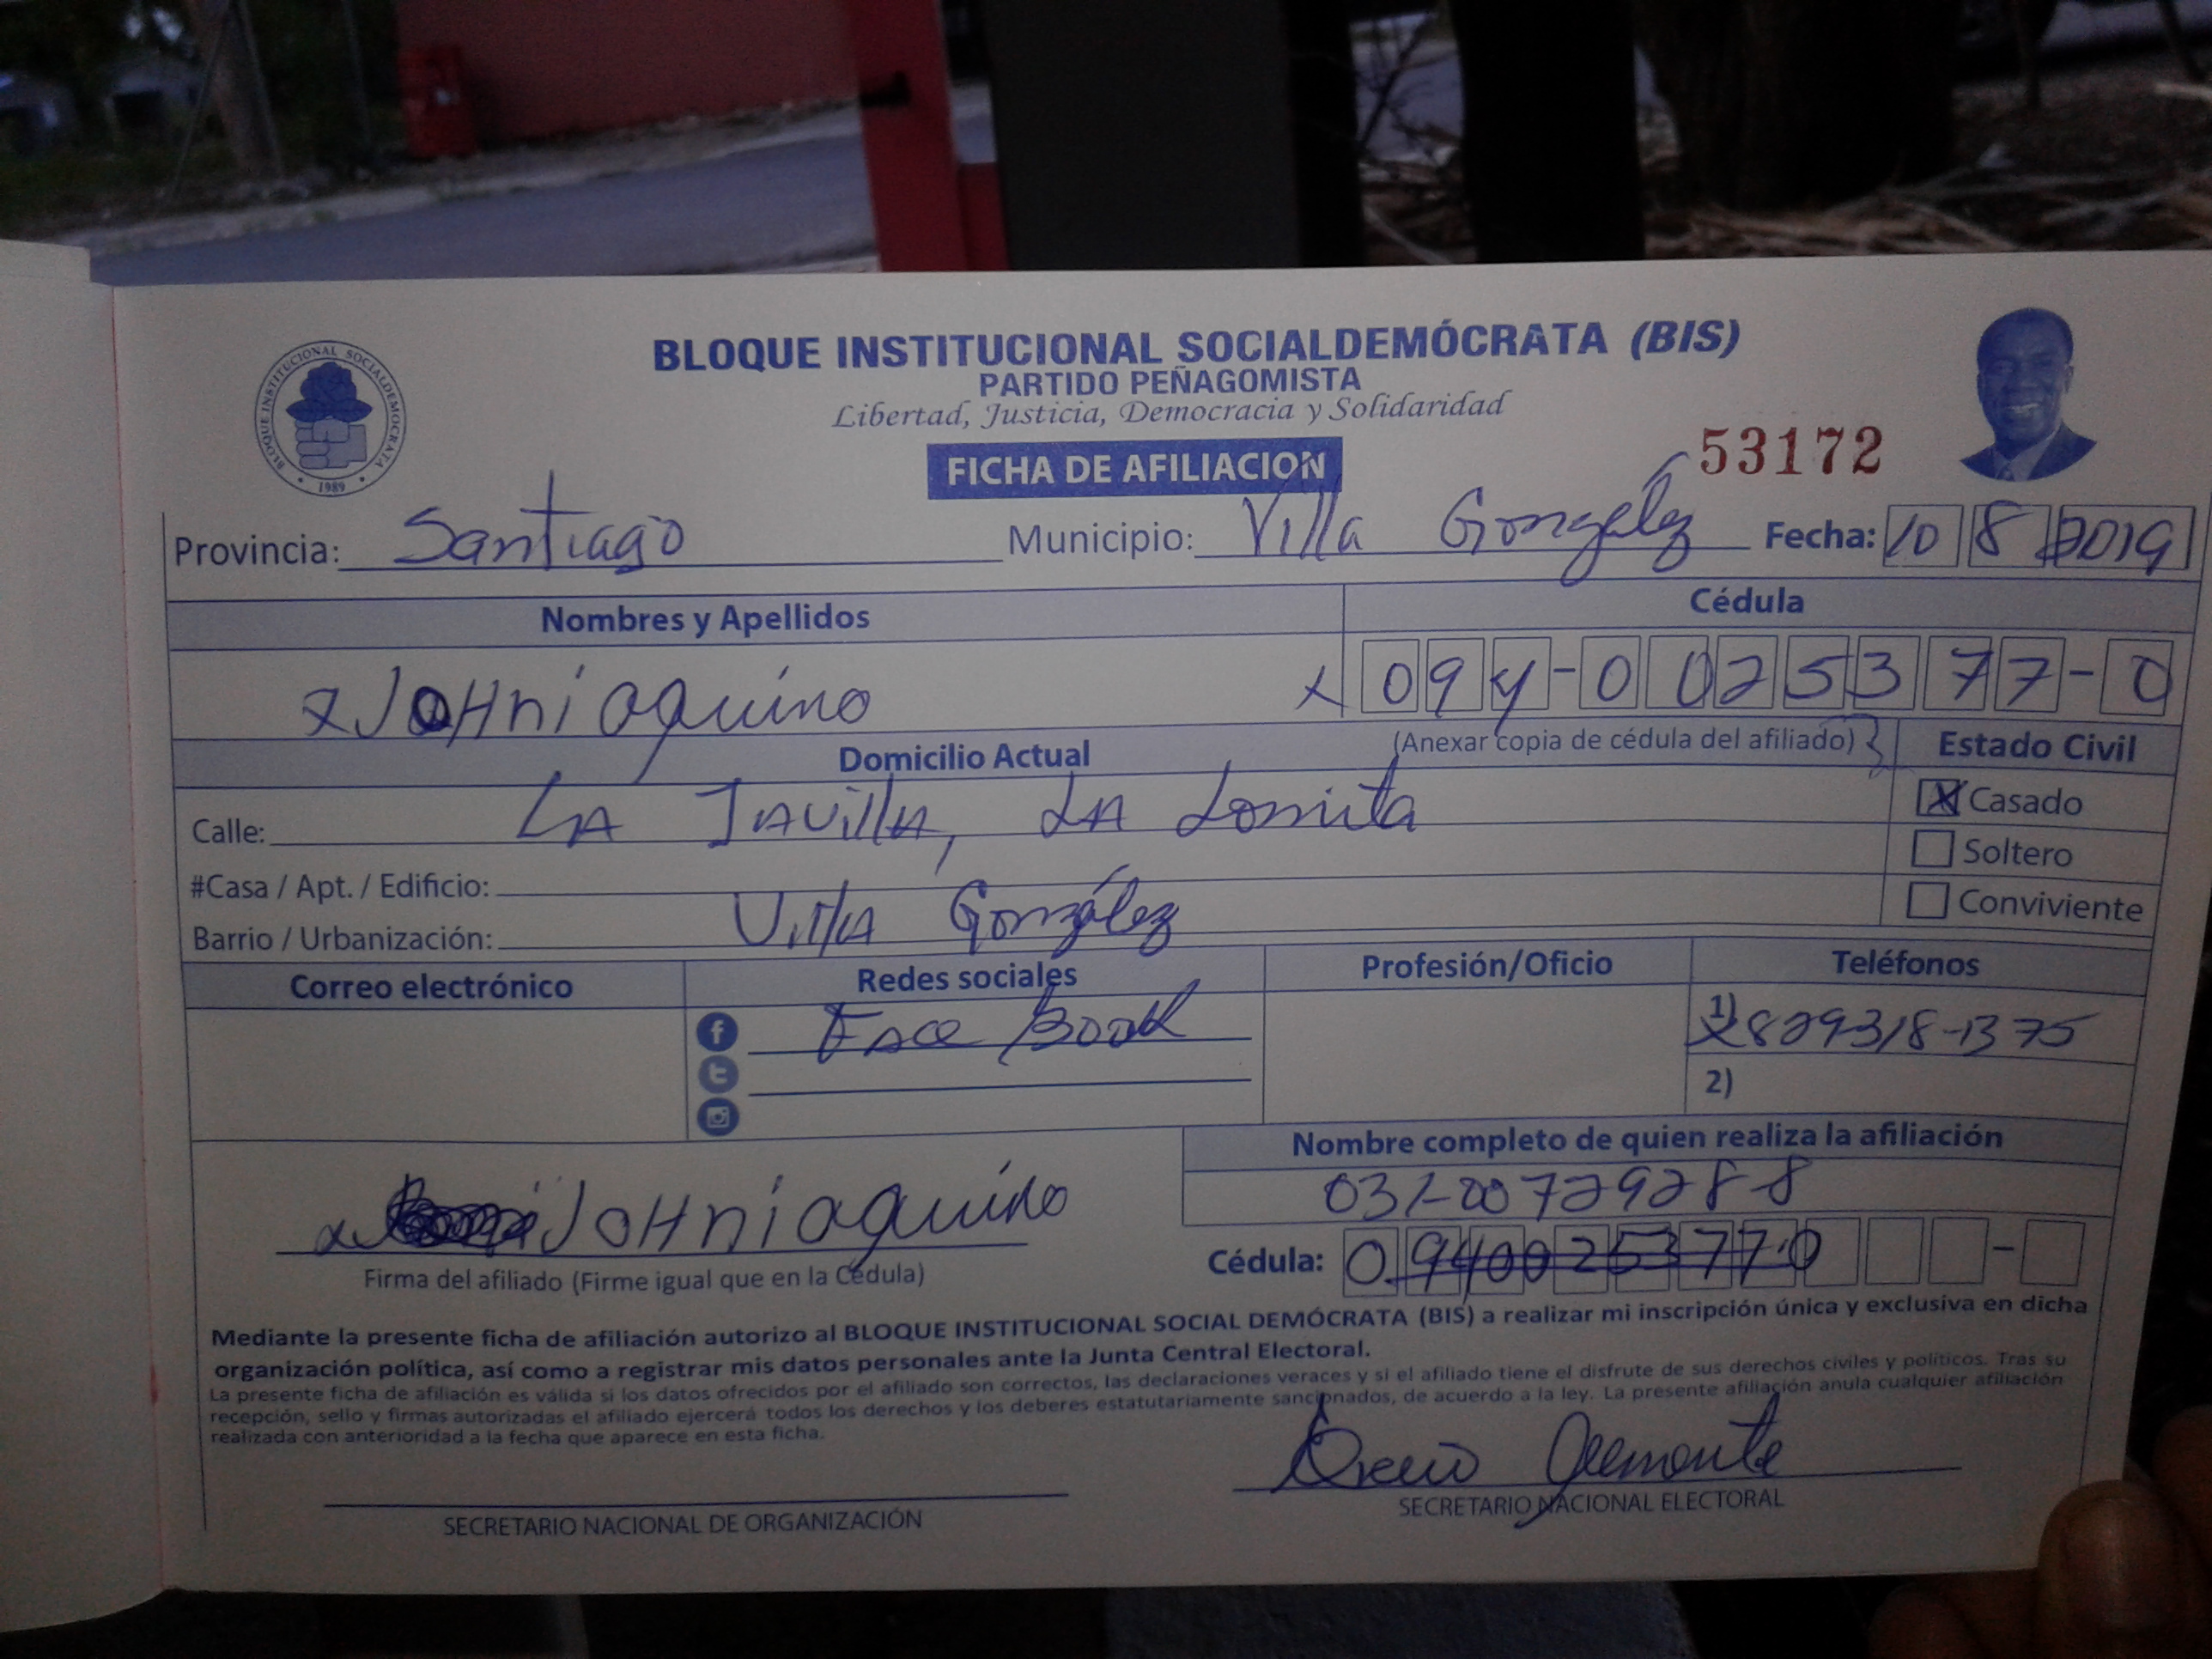 BLOQUE INSTITUCIONAL SOCIALDEMÓCRATA (BIS)
PARTIDO PEÑAGOMISTA
Libertad, Justicia, Democracia y Solidaridad
BLOQUE INSTITUCIONAL SOCIALDEMOCRATA
1989
FICHA DE AFILIACION
53172
Provincia: Santiago Municipio: Villa González Fecha: 10 8 2019
Nombres y Apellidos Cédula
x JOHni aquino x 094-0025377-0
Domicilio Actual (Anexar copia de cédula del afiliado) Estado Civil
Calle: LA JAVillA, LA Lomita X Casado
Soltero
#Casa / Apt. / Edificio:
Conviviente
Barrio / Urbanización: VillA González
Correo electrónico Redes sociales Profesión/Oficio Teléfonos
f FACE BOOK 1) x 829318-1375
2)
Nombre completo de quien realiza la afiliación
031-0072928-8
x JOHni aquino
Cédula: 09400253770 -
Firma del afiliado (Firme igual que en la Cédula)
Mediante la presente ficha de afiliación autorizo al BLOQUE INSTITUCIONAL SOCIAL DEMÓCRATA (BIS) a realizar mi inscripción única y exclusiva en dicha
organización política, así como a registrar mis datos personales ante la Junta Central Electoral.
La presente ficha de afiliación es válida si los datos ofrecidos por el afiliado son correctos, las declaraciones veraces y si el afiliado tiene el disfrute de sus derechos civiles y políticos. Tras su
recepción, sello y firmas autorizadas el afiliado ejercerá todos los derechos y los deberes estatutariamente sancionados, de acuerdo a la ley. La presente afiliación anula cualquier afiliación
realizada con anterioridad a la fecha que aparece en esta ficha.
SECRETARIO NACIONAL DE ORGANIZACIÓN SECRETARIO NACIONAL ELECTORAL